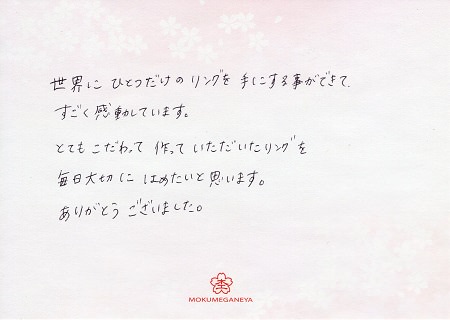 世界に ひとつだけの リングを 手にする事ができて、
すごく 感動しています。
とても こだわって 作って いただいたリングを
毎日大切に はめたいと思います。
ありがとう ございました。
MOKUMEGANEYA